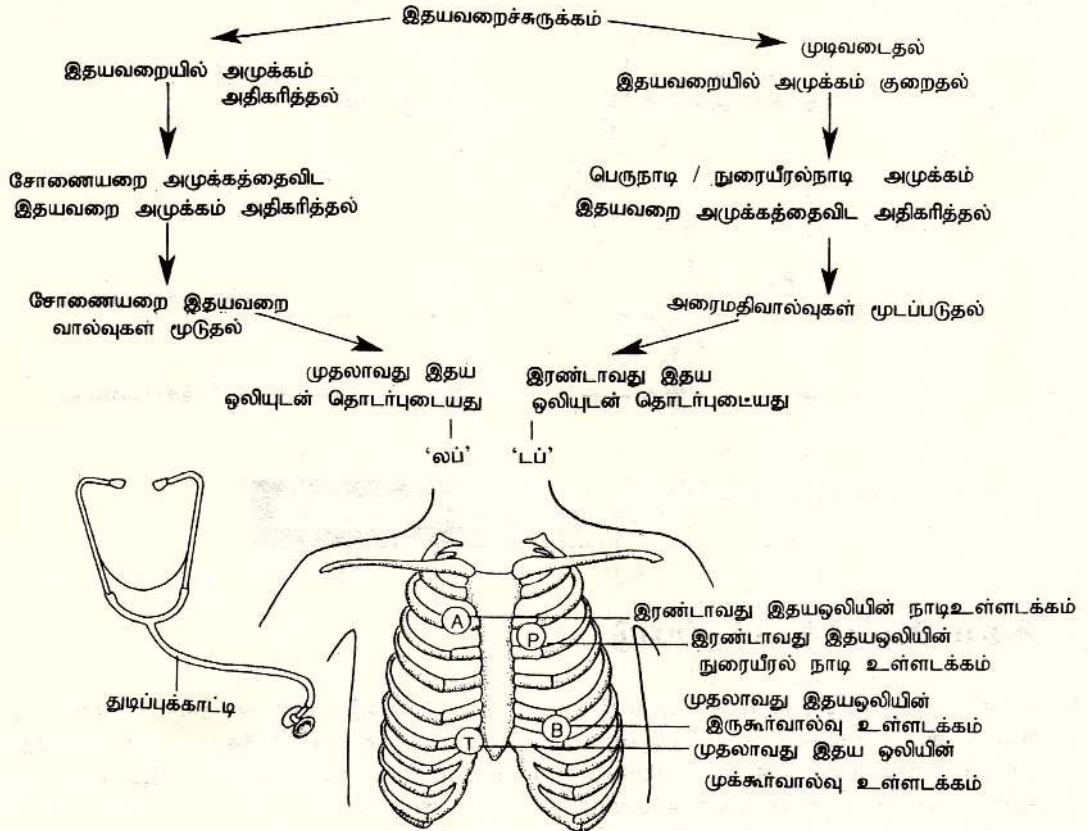 இதயவறைச்சுருக்கம்
இதயவறையில் அமுக்கம்
அதிகரித்தல்
சோணையறை அமுக்கத்தைவிட
இதயவறை அமுக்கம் அதிகரித்தல்
சோணையறை இதயவறை
வால்வுகள் மூடுதல்
முதலாவது இதய
ஒலியுடன் தொடர்புடையது
'லப்'
முடிவடைதல்
இதயவறையில் அமுக்கம் குறைதல்
பெருநாடி / நுரையீரல்நாடி அமுக்கம்
இதயவறை அமுக்கத்தைவிட அதிகரித்தல்
அரைமதிவால்வுகள் மூடப்படுதல்
இரண்டாவது இதய
ஒலியுடன் தொடர்புடையது
'டப்'
துடிப்புக்காட்டி
A
P
B
T
இரண்டாவது இதயஒலியின் நாடிஉள்ளடக்கம்
இரண்டாவது இதயஒலியின்
நுரையீரல் நாடி உள்ளடக்கம்
முதலாவது இதயஒலியின்
இருகூர்வால்வு உள்ளடக்கம்
முதலாவது இதய ஒலியின்
முக்கூர்வால்வு உள்ளடக்கம்